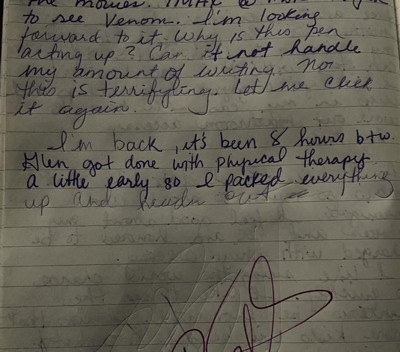 the movies.
to see Venom. I'm looking
forward to it. Why is this pen
acting up? Can it not handle
my amount of writing. No
this is terrifying. Let me click
it again.
I'm back, it's been 8 hours btw.
Glen got done with physical therapy
a little early so I packed everything
up and headn out.